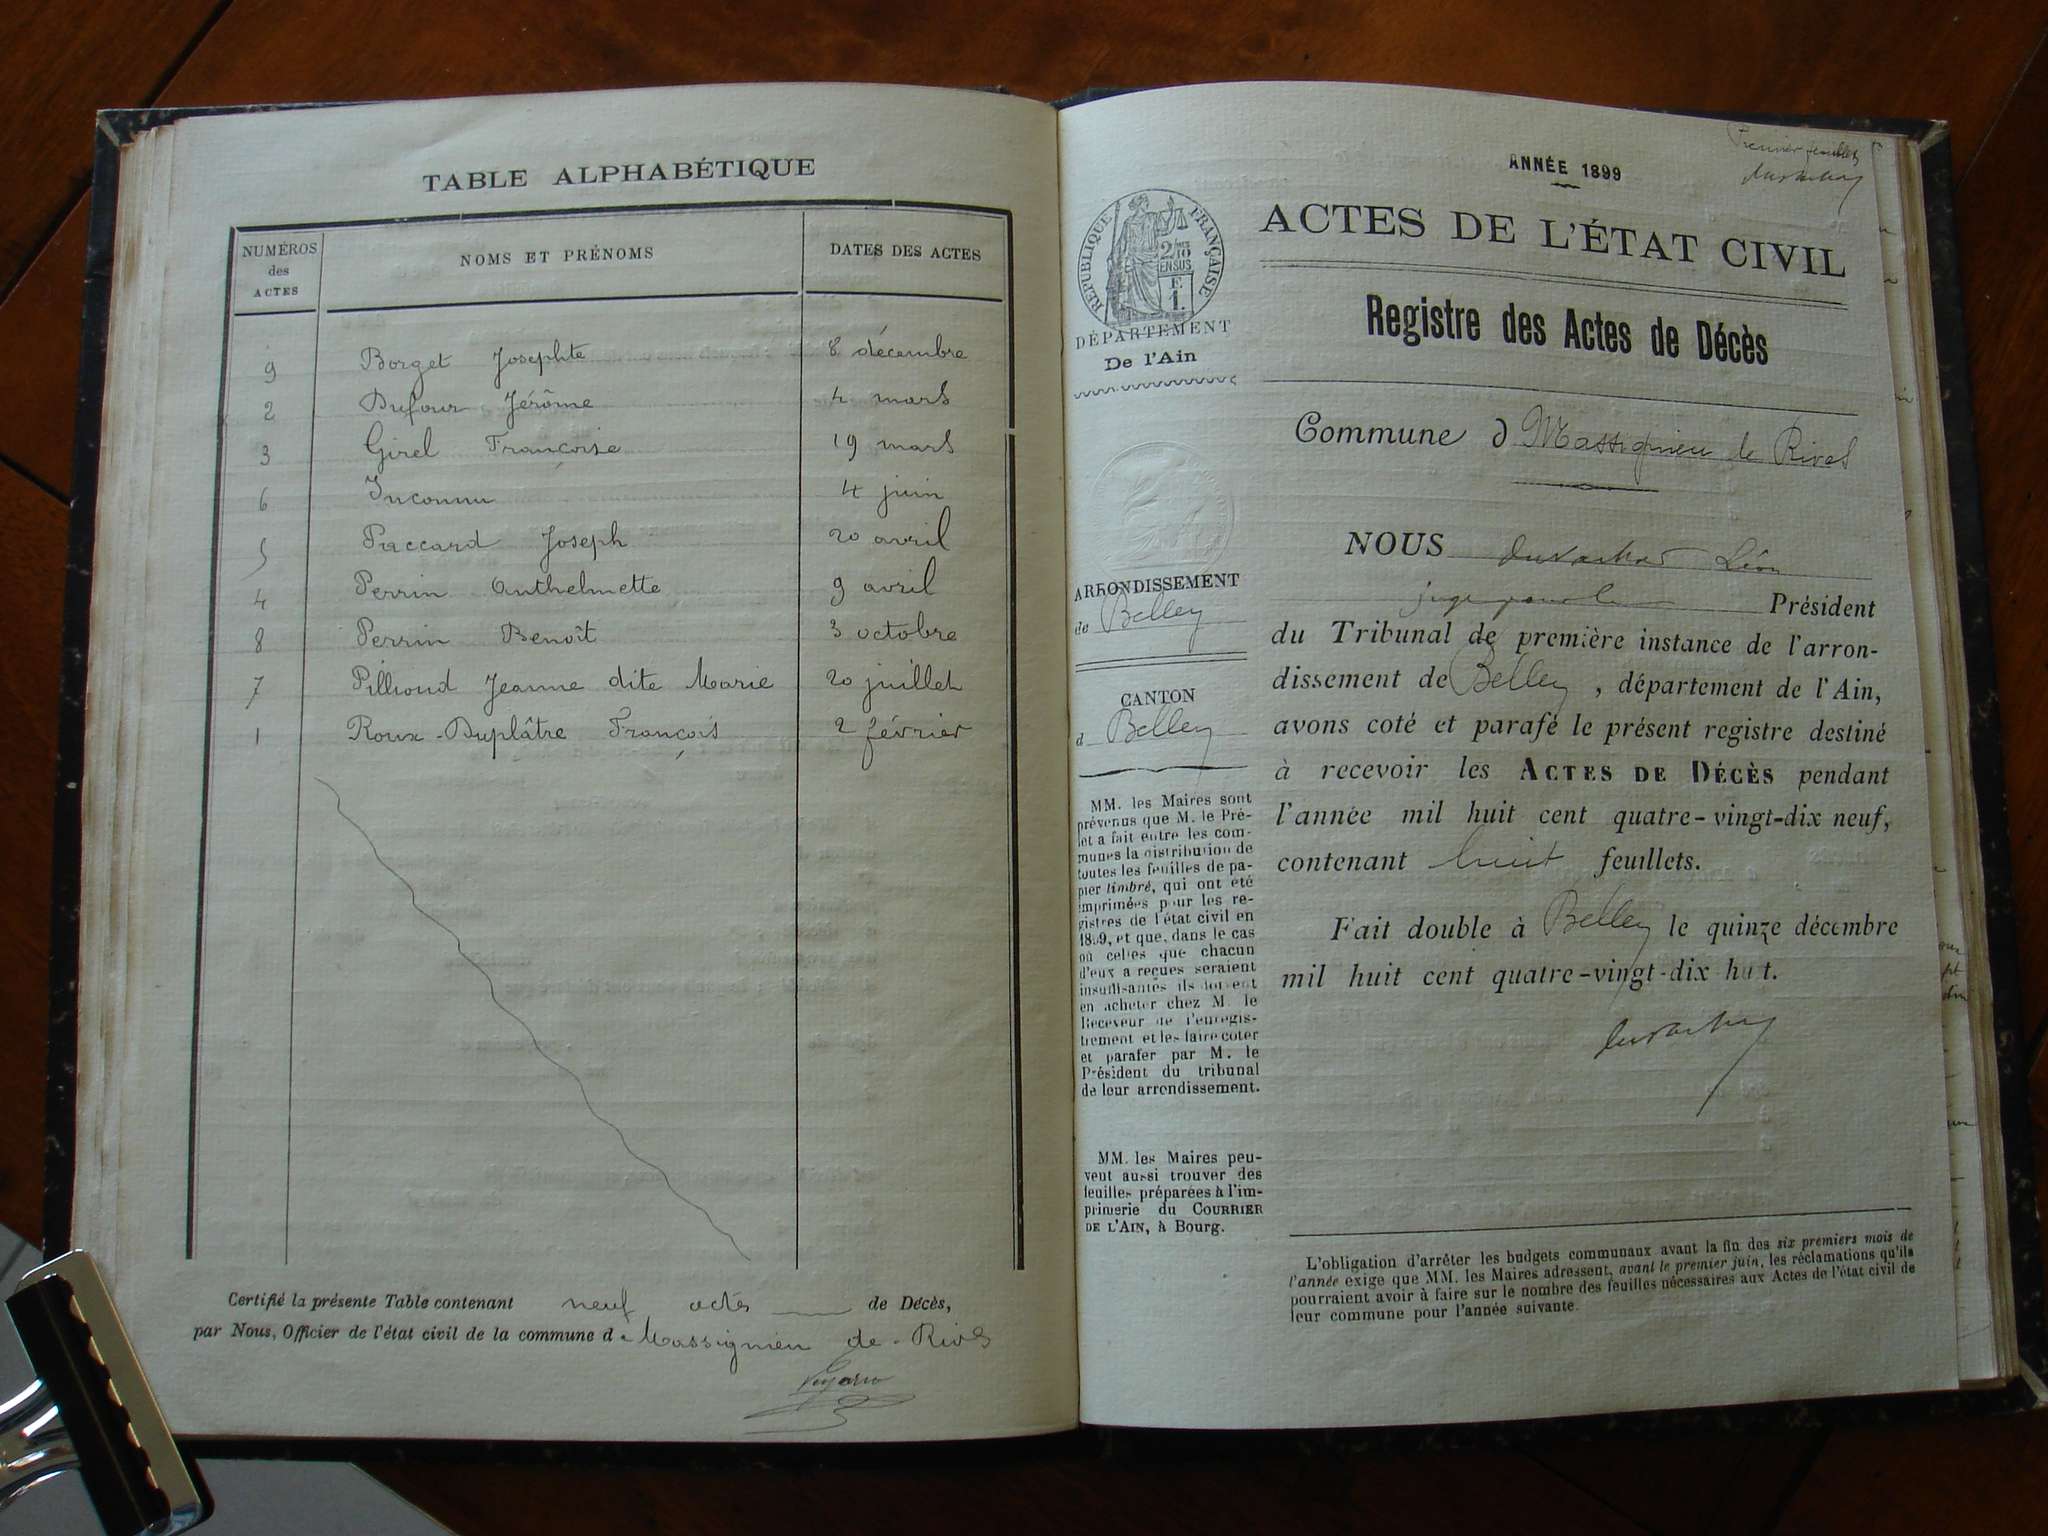 TABLE ALPHABÉTIQUE
NUMÉROS des ACTES NOMS ET PRÉNOMS DATES DES ACTES
9 Borget Josephte 8 décembre
2 Dufour Jérôme 4 mars
3 Girel Françoise 19 mars
6 Inconnu 4 juin
5 Paccard Joseph 20 avril
4 Perrin Anthelmette 9 avril
8 Perrin Benoît 3 octobre
7 Pilliond Jeanne dite Marie 20 juillet
1 Roux-Duplâtre François 2 février
Certifié la présente Table contenant neuf actes de Décès,
par Nous, Officier de l'état civil de la commune de Massignieu de-Rives
Premier feuillet
ANNÉE 1899
ACTES DE L'ÉTAT CIVIL
Registre des Actes de Décès
RÉPUBLIQUE FRANÇAISE
2/10 EN SUS
F
1.
DÉPARTEMENT
De l'Ain
Commune d Massignieu de Rives
ARRONDISSEMENT
de Belley
CANTON
d Belley
MM. les Maires sont
prévenus que M. le Pré-
fet a fait entre les com-
munes la distribution de
toutes les feuilles de pa-
pier timbré, qui ont été
imprimées pour les re-
gistres de l'état civil en
1899, et que, dans le cas
où celles que chacun
d'eux a reçues seraient
insuffisantes ils doivent
en acheter chez M. le
Receveur de l'enregis-
trement et les faire coter
et parafer par M. le
Président du tribunal
de leur arrondissement.
MM. les Maires peu-
vent aussi trouver des
feuilles préparées à l'im-
primerie du COURRIER
DE L'AIN, à Bourg.
NOUS Léon
juge Président
du Tribunal de première instance de l'arron-
dissement de Belley, département de l'Ain,
avons coté et parafé le présent registre destiné
à recevoir les ACTES DE DÉCÈS pendant
l'année mil huit cent quatre-vingt-dix neuf,
contenant huit feuillets.
Fait double à Belley le quinze décembre
mil huit cent quatre-vingt-dix huit.
L'obligation d'arrêter les budgets communaux avant la fin des six premiers mois de
l'année exige que MM. les Maires adressent, avant le premier juin, les réclamations qu'ils
pourraient avoir à faire sur le nombre des feuilles nécessaires aux Actes de l'état civil de
leur commune pour l'année suivante.